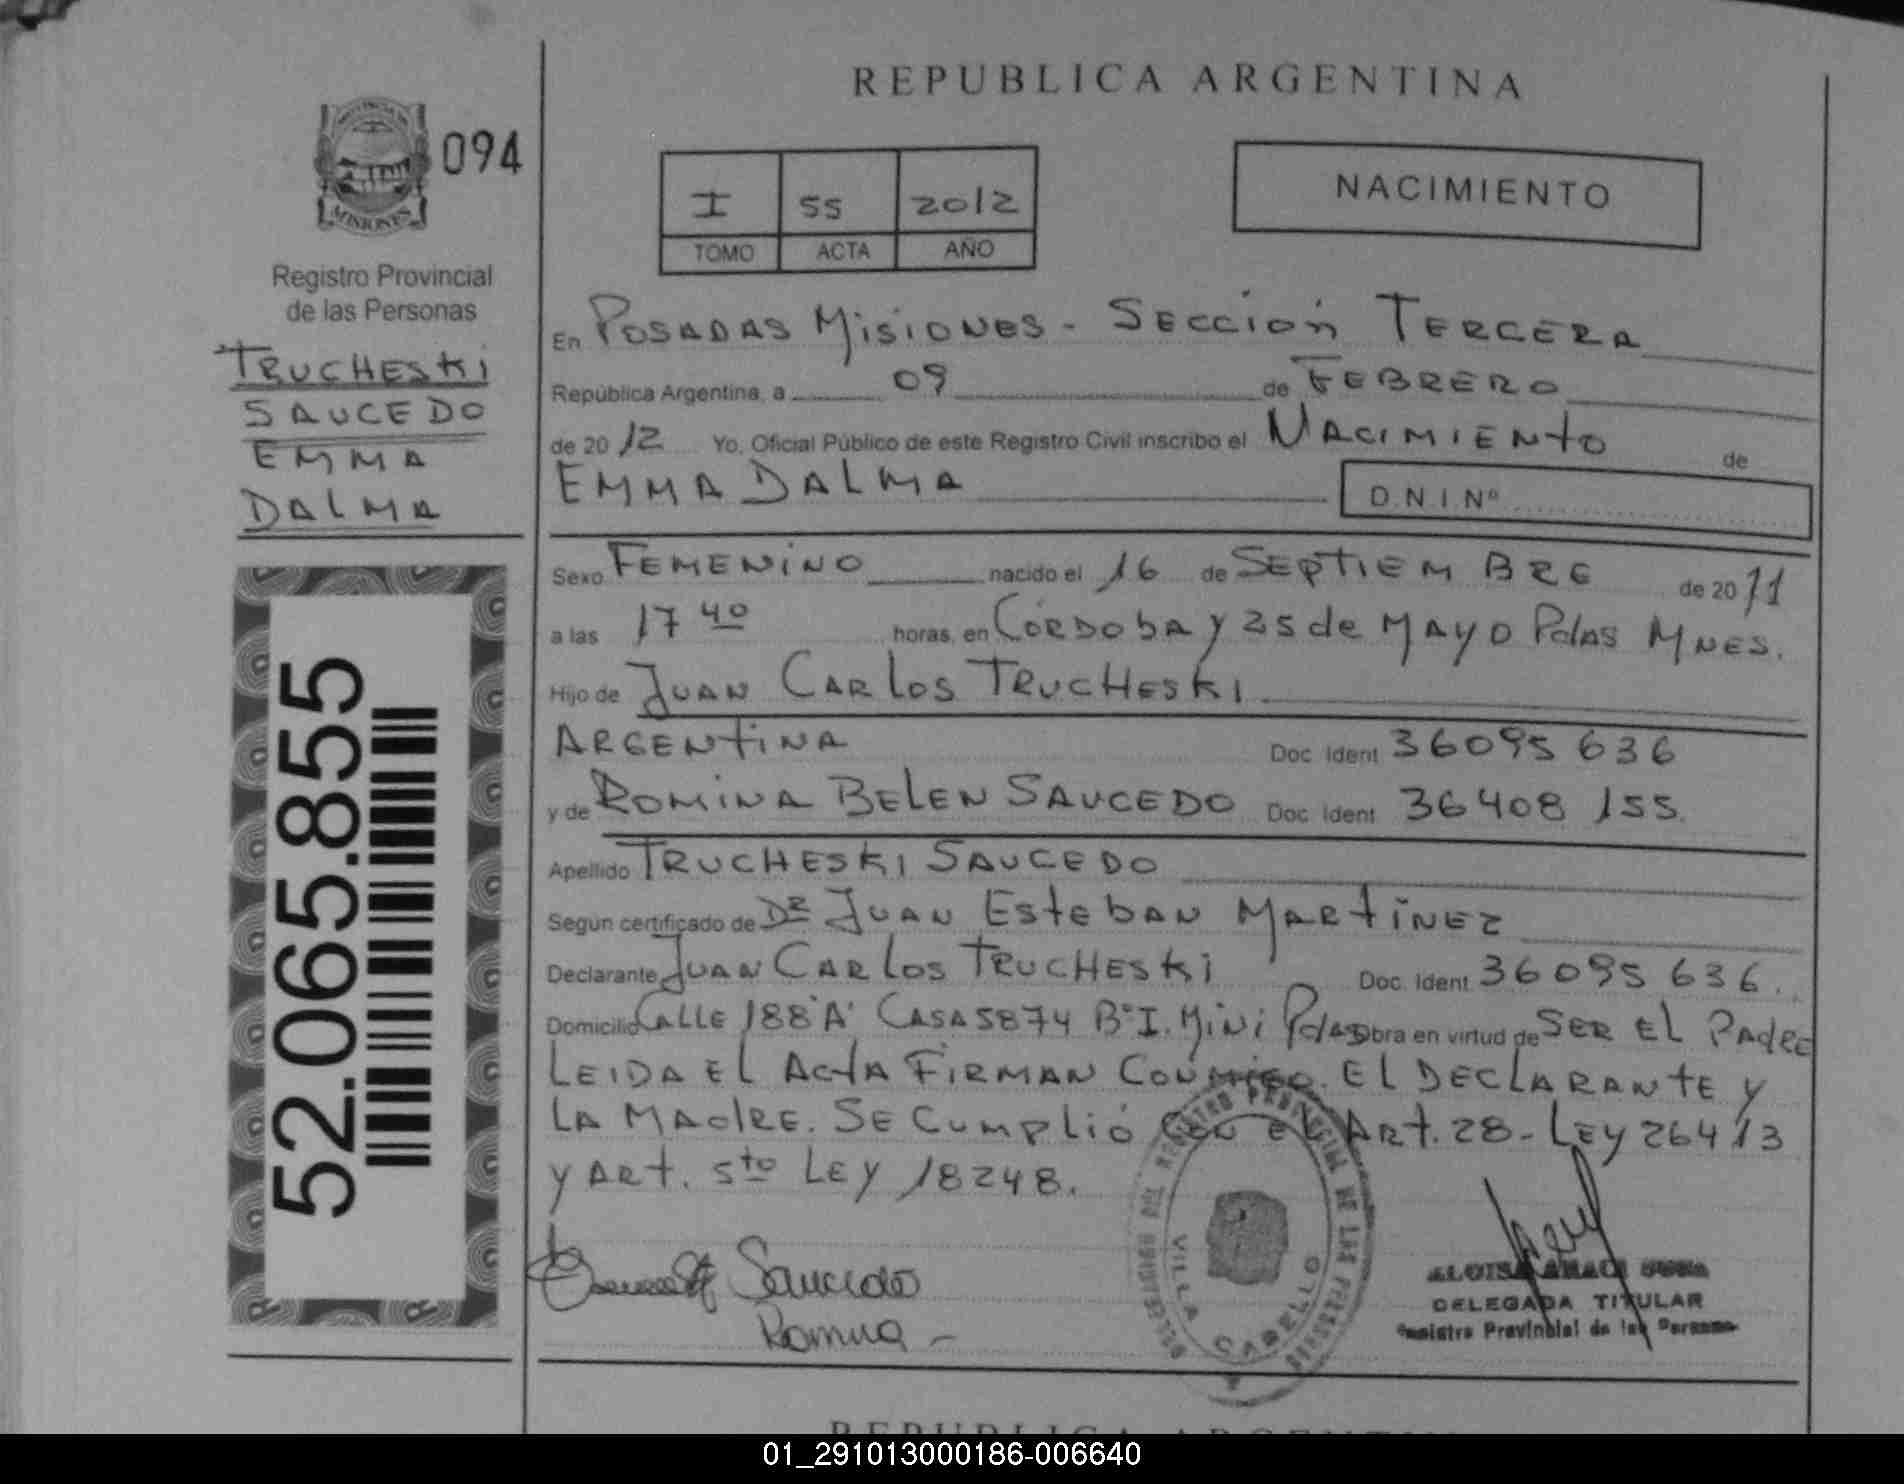 REPUBLICA ARGENTINA
094
MISIONES
Registro Provincial
de las Personas
TRUCHESKI
SAUCEDO
EMMA
DALMA
52.065.855
I 55 2012
TOMO ACTA AÑO
NACIMIENTO
En POSADAS MISIONES - SECCIÓN TERCERA
República Argentina, a 09 de FEBRERO
de 2012 Yo, Oficial Público de este Registro Civil inscribo el NACIMIENTO de
EMMA DALMA D.N.I.Nº
Sexo FEMENINO nacido el 16 de SEPTIEMBRE de 2011
a las 17 40 horas, en CÓRDOBA y 25 de MAYO Pdas MNES.
Hijo de JUAN CARLOS TRUCHESKI
ARGENTINA Doc. Ident. 36095636
y de ROMINA BELEN SAUCEDO Doc. Ident. 36408155.
Apellido TRUCHESKI SAUCEDO
Según certificado de DR JUAN ESTEBAN MARTINEZ
Declarante JUAN CARLOS TRUCHESKI Doc. Ident. 36095636.
Domicilio CALLE 188"A" CASA 5874 Bº I. MiNi Pdas Obra en virtud de SER EL PADRE
LEIDA EL ACTA FIRMAN CONMIGO. EL DECLARANTE y
LA MADRE. SE CUMPLIÓ CON EL ART. 28 - LEY 26413
y ART. 5to LEY 18248.
Saucedo
Romina -
REGISTRO PROVINCIAL DE LAS PERSONAS
VILLA CABELLO
DELEGADA TITULAR
Registro Provincial de las Personas
REPUBLICA ARGENTINA
01_291013000186-006640